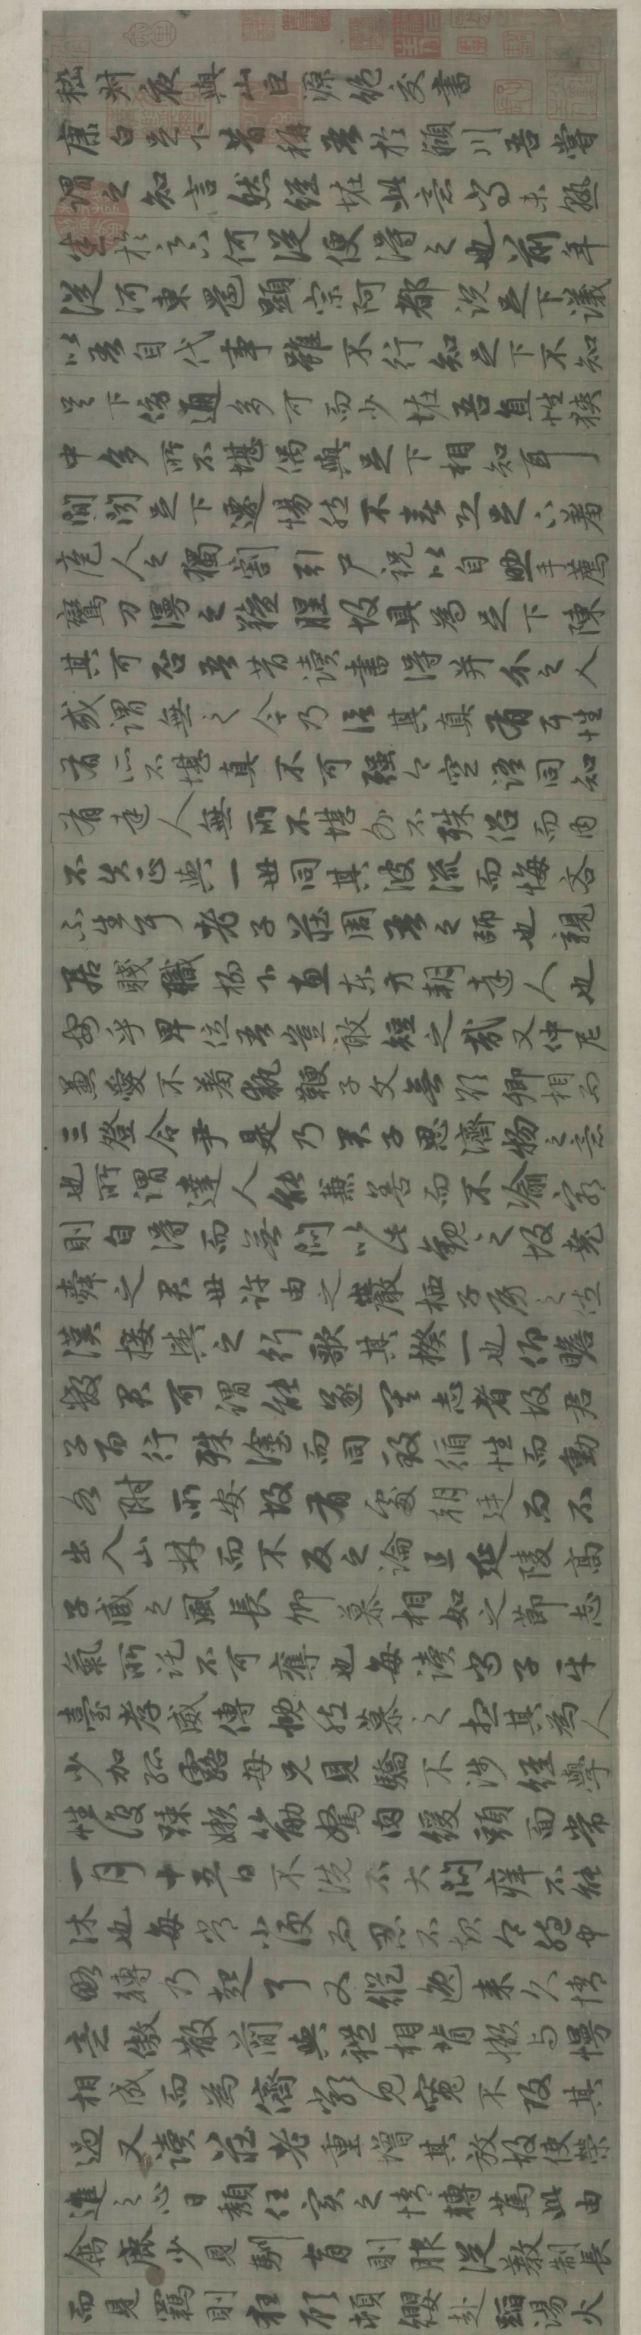 嵇叔夜與山巨源絕交書
康白足下昔稱吾於潁川吾嘗
謂之知言然經怪此意尚未熟
悉於足下何從便得之也前年
從河東還顯宗阿都說足下議
以吾自代事雖不行知足下不知
足下傍通多可而少怪吾直性狹
中多所不堪偶與足下相知耳
間聞足下遷惕然不喜恐足下羞
庖人之獨割引尸祝以自助手薦
鸞刀漫之羶腥故具為足下陳
其可否吾昔讀書得并介之人
或謂無之今乃信其真有耳性
有所不堪真不可強今空語同知
有達人無所不堪外不殊俗而內
不失正與一世同其波流而悔吝
不生耳老子莊周吾之師也親
居賤職柳下惠東方朔達人也
安乎卑位吾豈敢短之哉又仲尼
兼愛不羞執鞭子文無欲卿相而
三登令尹是乃君子思濟物之意
也所謂達人能兼善而不渝窮
則自得而無悶以此觀之故堯
舜之君世許由之巖栖子房之佐
漢接輿之行歌其揆一也仰瞻
數君可謂能遂其志者故君
子百行殊塗而同致循性而動
各附所安故有處朝廷而不
出入山林而不反之論且延陵高
子臧之風長卿慕相如之節志
氣所託不可奪也每讀尚子平
臺孝威傳慨然慕之想其為人
少加孤露母兄見驕不涉經學
性復疎嬾筋駑肉緩頭面常
一月十五日不洗不大悶癢不能
沐也每常小便而忍不起令胞中
略轉乃起耳又縱逸來久情
意傲散簡與禮相背嬾與慢
相成而為儕類見寬不攻其
過又讀莊老重增其放故使榮
進之心日頹任實之情轉篤此由
禽鹿少見馴育則服從教制長
而見羈則狂顧頓纓赴蹈湯火